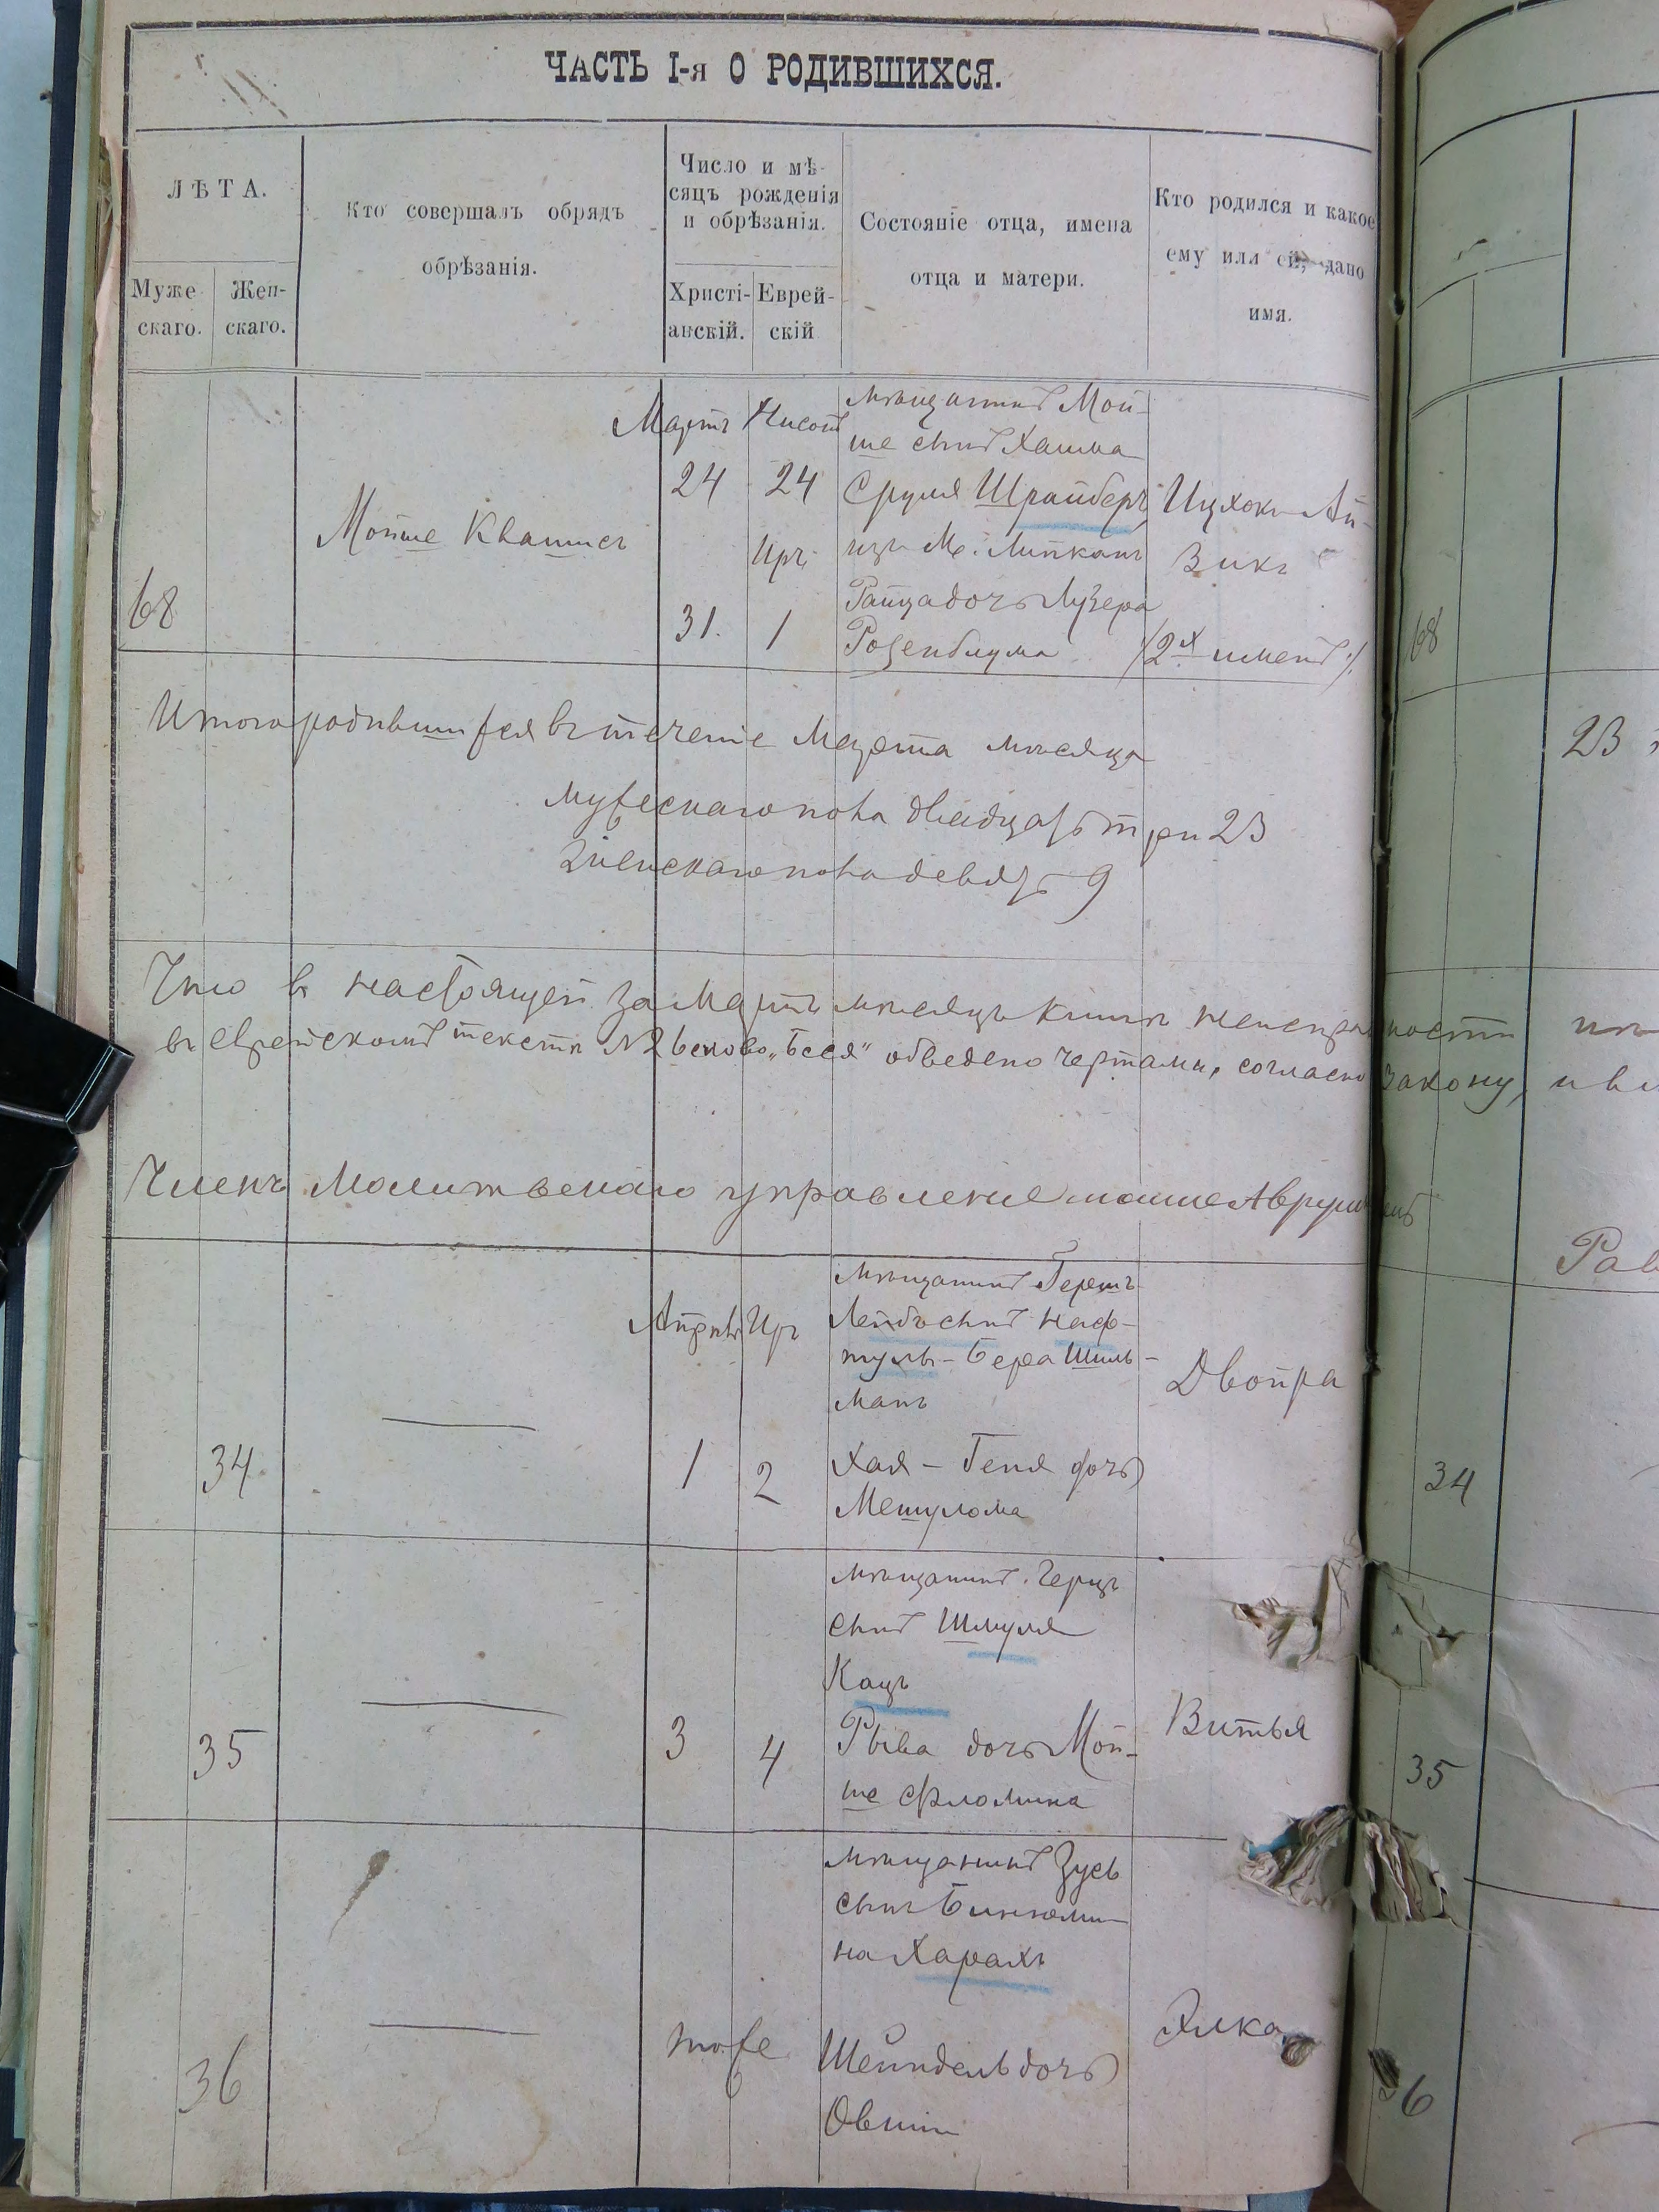 ЧАСТЬ I-я О РОДИВШИХСЯ.
ЛѢТА.
Муже
скаго.
Жен-
скаго.
Кто совершалъ обрядъ
обрѣзанія.
Число и мѣ-
сяцъ рожденія
и обрѣзанія.
Христі-
анскій.
Еврей-
скій
Состояніе отца, имена
отца и матери.
Кто родился и какое
ему или ей, дано
имя.
68
Мойше Квашисъ
Мартъ
24
31.
Нисонъ
24
Иръ
1
мѣщанинъ Мой-
ше сынъ Хаима
Сруля Шрайберъ
изъ М. Липканъ
Райца дочь Лузера
Розенблума
Ицхокъ Ай-
Викъ
/2х именъ/.
68
Итого родившихся въ теченіе Марта мѣсяца
23
мужескаго пола двадцать три 23
женскаго пола девять 9
Что в настоящей за Мартъ мѣсяцъ книгѣ неисправности
въ еврейскомъ текстѣ № 26 слово „Бося" обведено чертами, согласно закону, и
Членъ Молитвенаго управленія
Рав
34
Апрѣль
1
Иръ
2
мѣщанинъ Гершъ
Лейбъ сынъ Наф-
тулы-Бера Шиль-
манъ
Хая-Геня дочь
Мешулома
Двойра
34
35
3
4
мѣщанинъ Герцъ
сынъ Шмуля
Кацъ
Рыва дочь Мой-
ше Фломина
Витья
35
36
тоже
мѣщанинъ Зусь
сынъ Биніоми-
на Харахъ
Шейндель дочь
Овшии
Элка
36